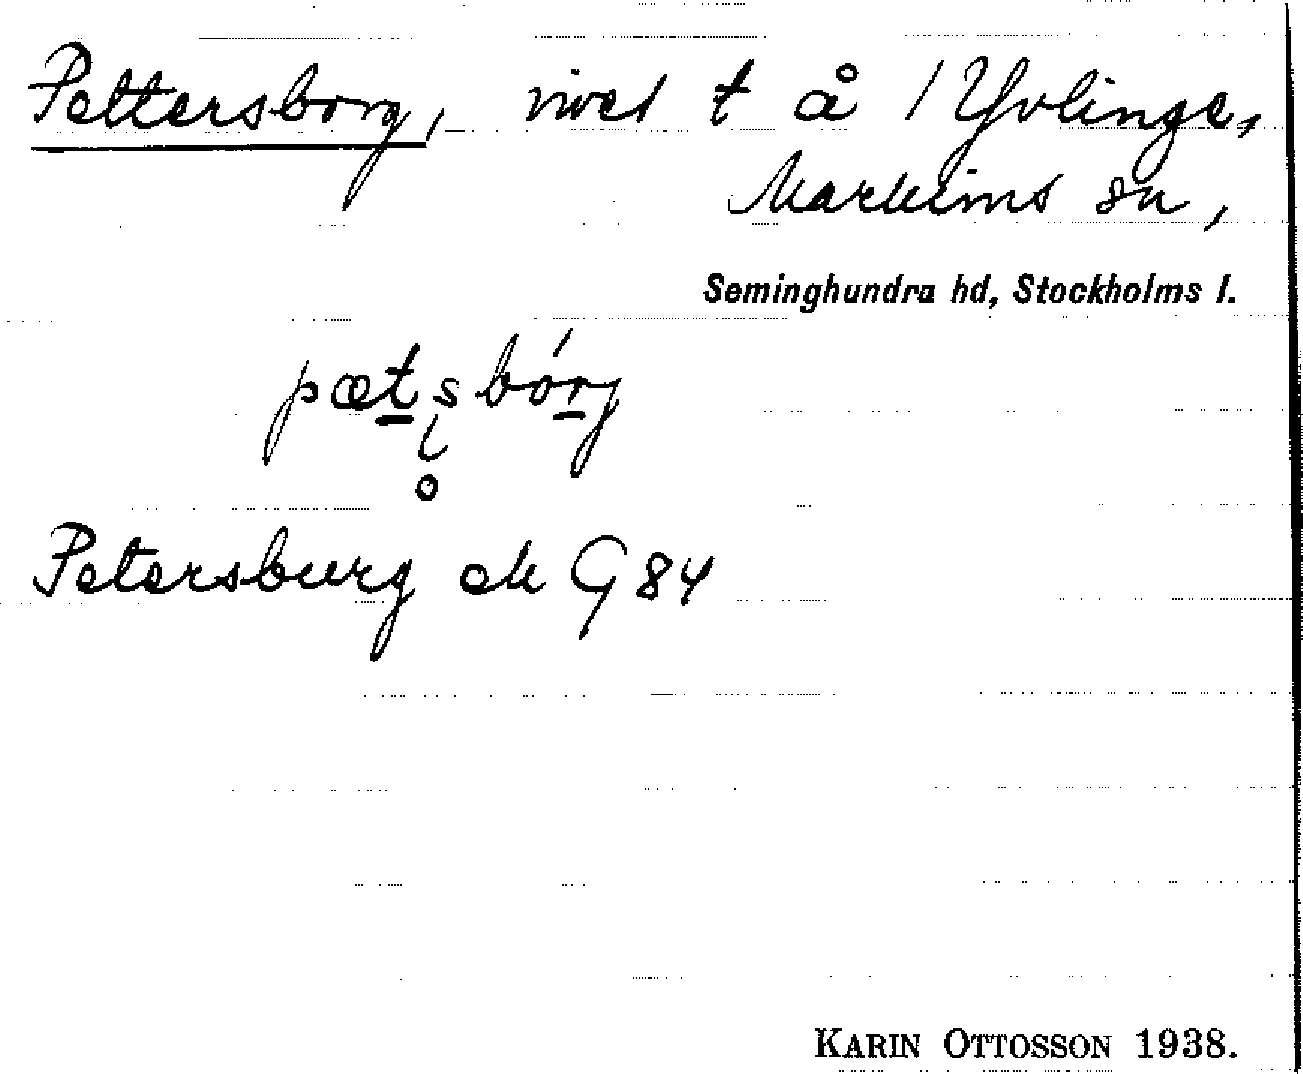 Pettersborg, rivet t å 1 Yvlinge,
Markims sn,
Seminghundra hd, Stockholms l.
pætsbórg
Petersburg ek G 84
KARIN OTTOSSON 1938.